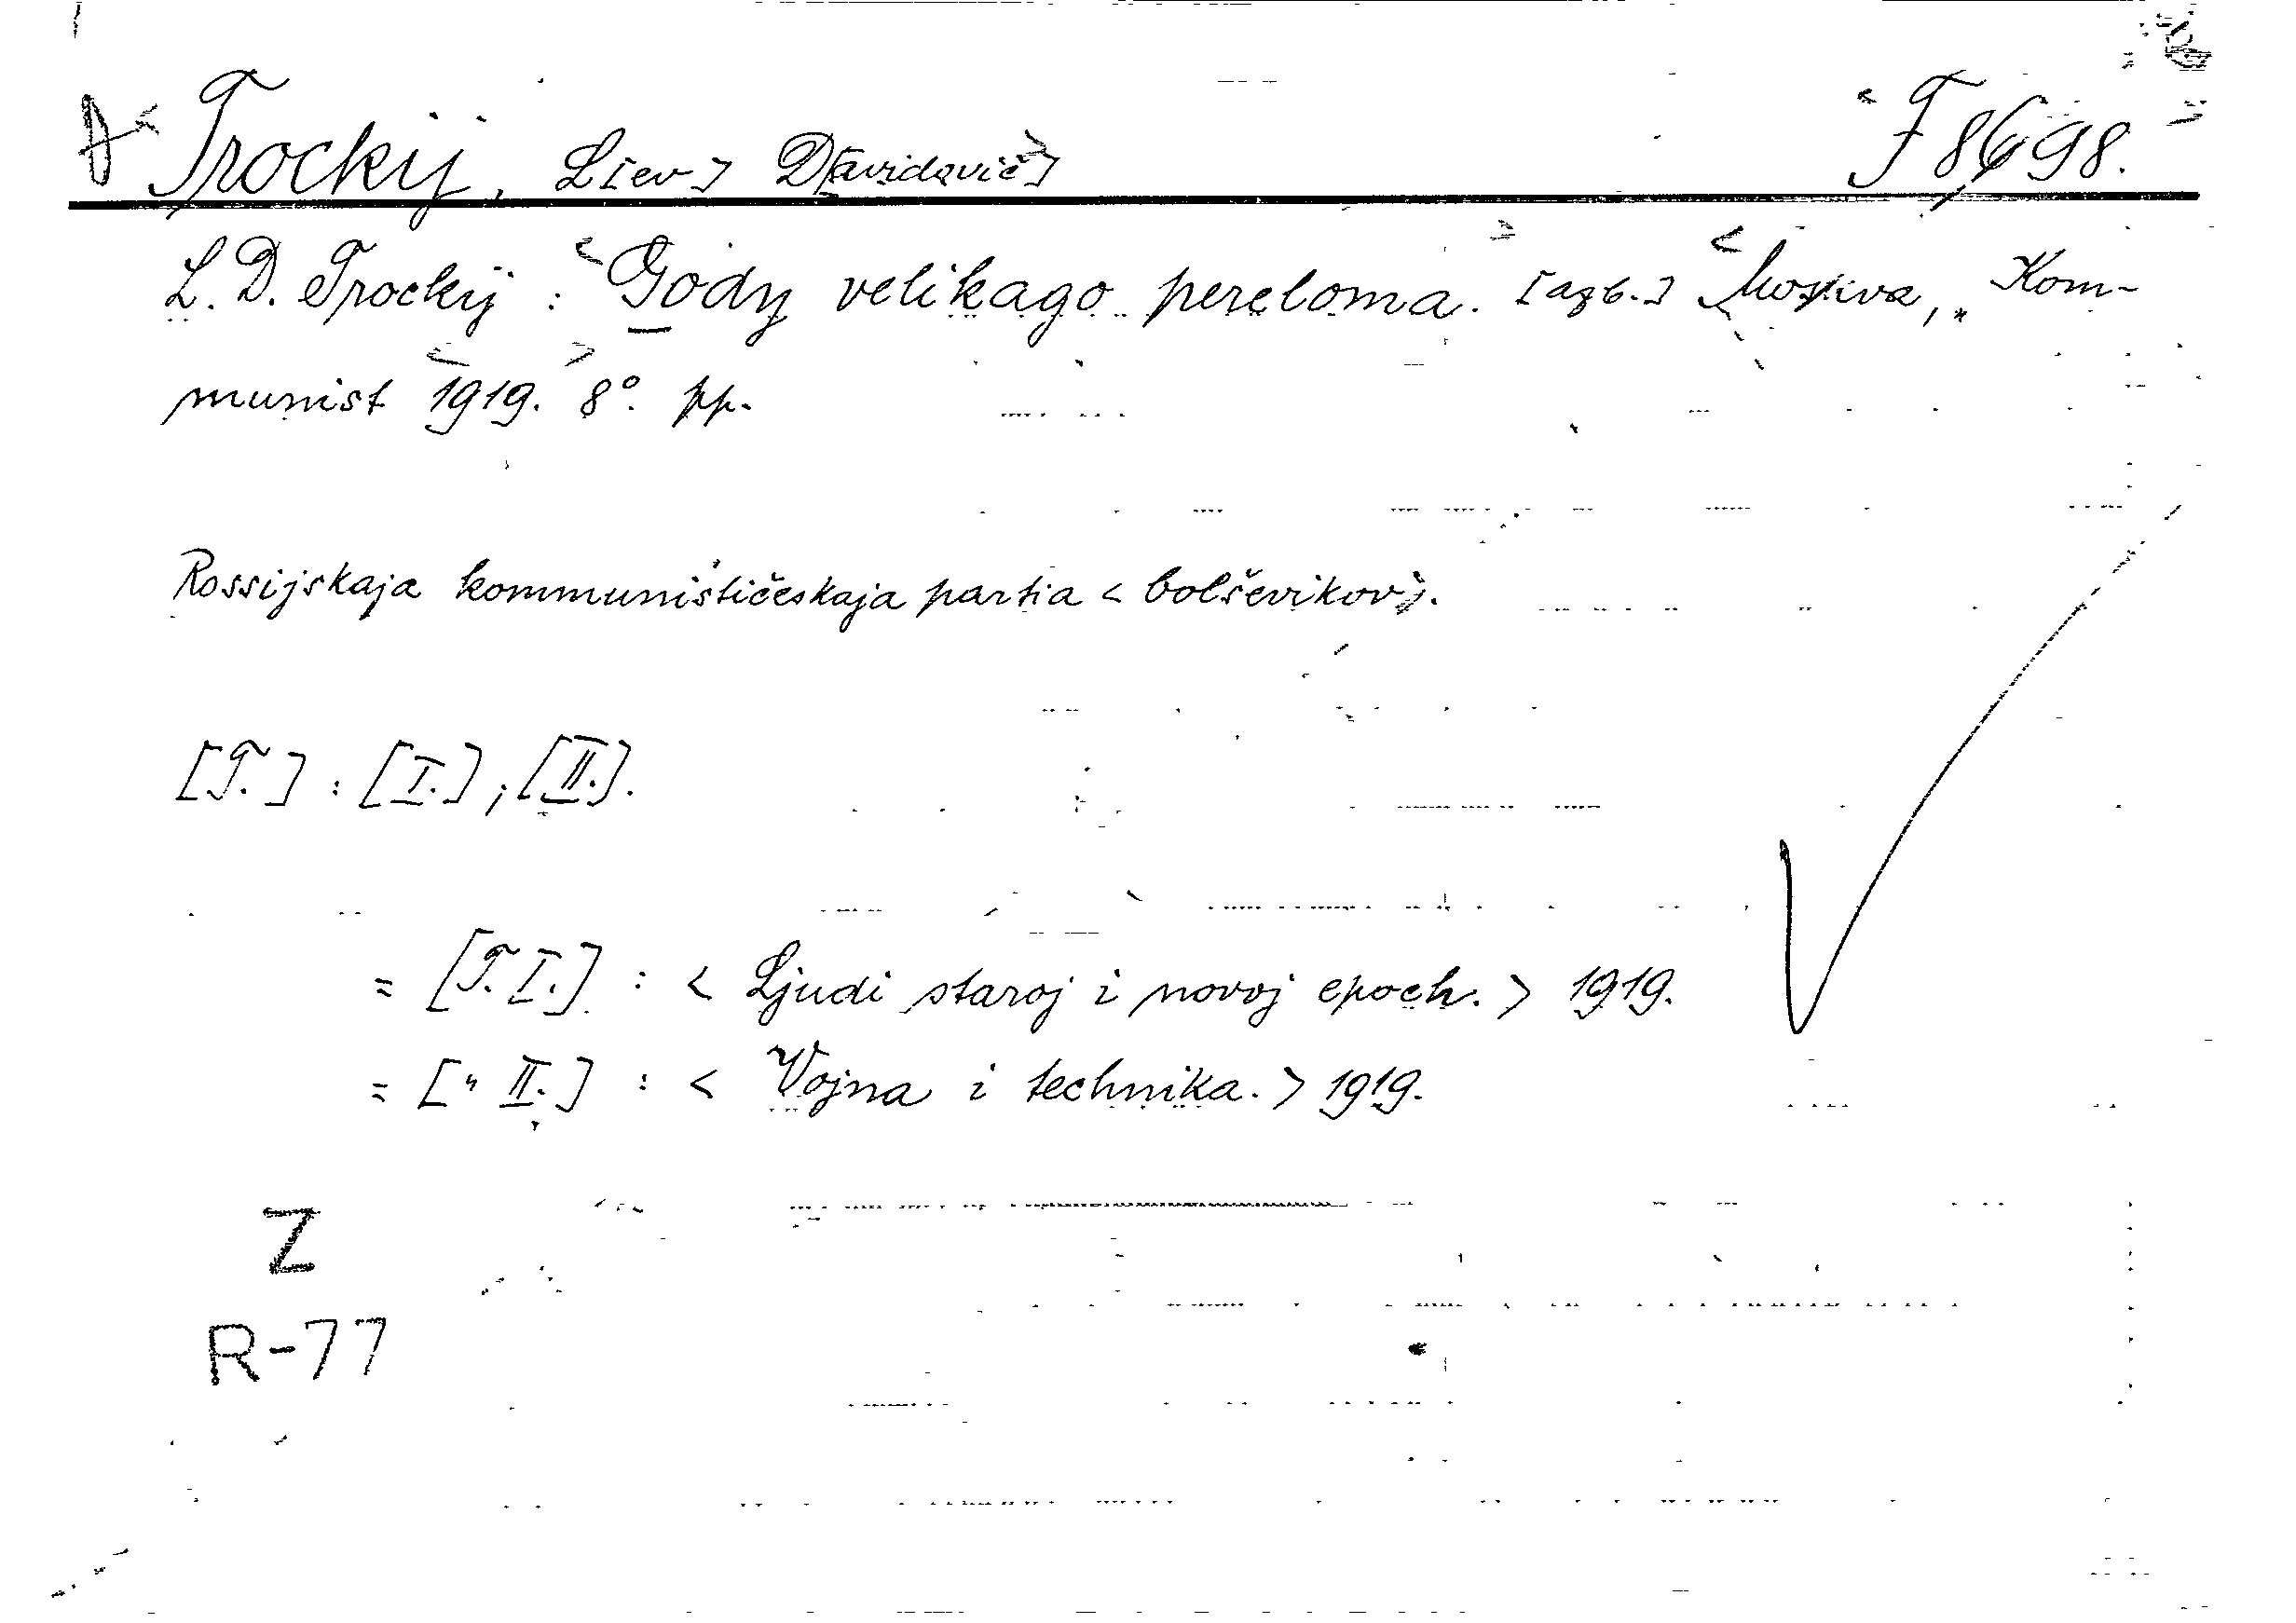 Trockij, L[ev] D[avidovič] F 8698.
L. D. Trockij : <Gody velikago pereloma.> [azb.] <Moskva, Kom-
munist <1919.> 8°. pp.
Rossijskaja kommunističeskaja partia <bolševikov>.
[T.] : [I.] ; [II.].
= [T. I.] : < Ljudi staroj i novoj epoch. > 1919.
= [" II.] : < Vojna i technika. > 1919.
Z
R-77